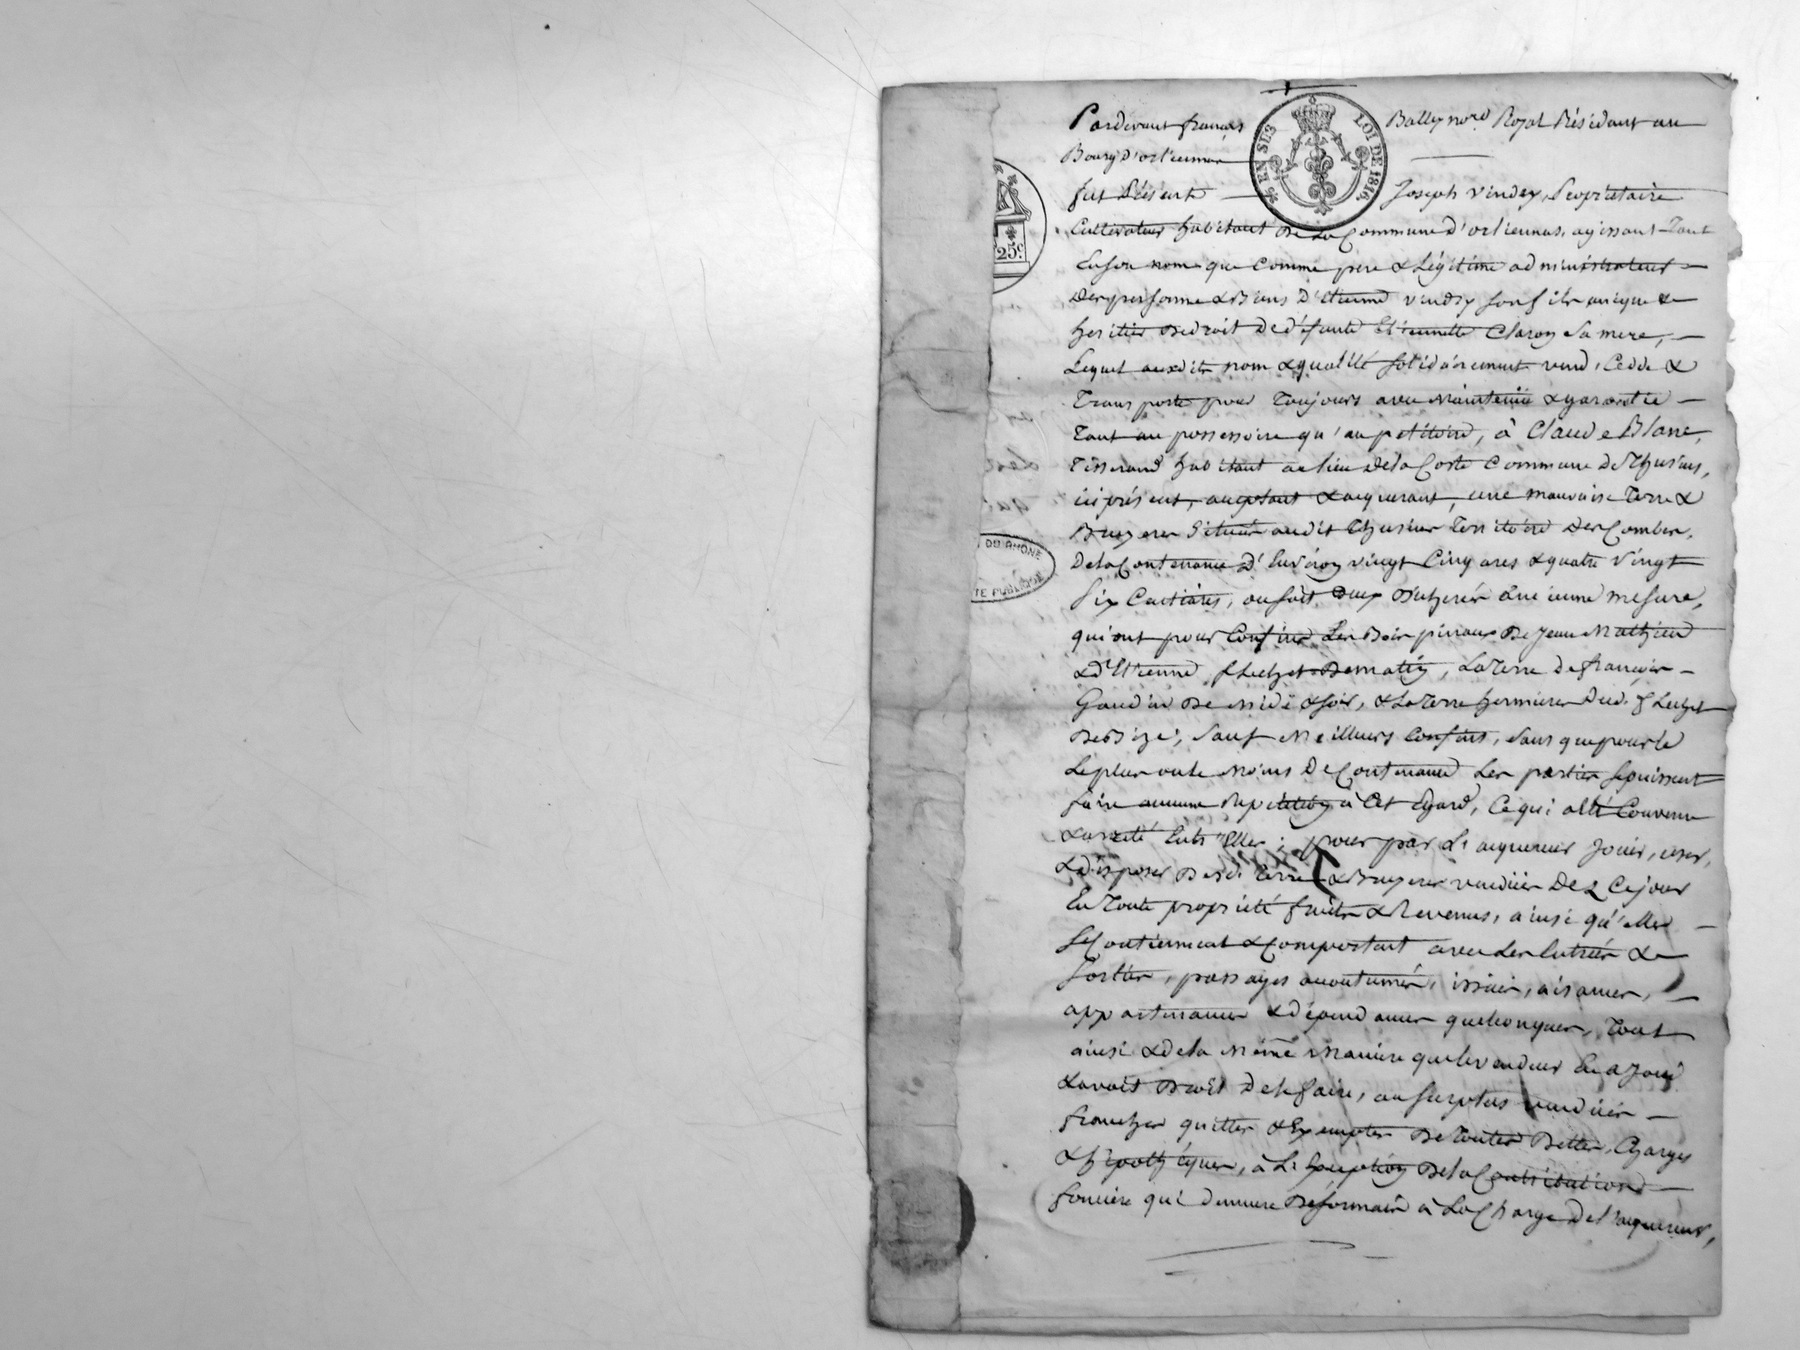 Pardevant françois Bally no.re Royal Résidant au
Bourg d'orliennas
fut Présent Joseph Vindry, Propriétaire
Cultivateur habitant de la Commune d'orliennas, agissant tant
En son nom que Comme pere & Légitime administrateur
des personne & Biens d'Etienne vindry son fils unique &
heritier de droit de défunte Etiennette Claron sa mere,
Lequel auxdits nom & qualité solidairement vend, Cedde &
Transporte pour Toujours avec Maintenüe & garantie
Tant au possessoire qu'au petitoire, à Claude Blanc,
Tisserand habitant au lieu de la Coste Commune de Thurins,
ici présent, acceptant & acquerant, une mauvaise Terre &
Bruyeres situées audit Thurins Territoire des Combes,
de la Contenance d'Environ vingt Cinq ares & quatre Vingt
Six Centiares, ou soit deux Bicherées ancienne mesure,
qui ont pour Confins Les Bois pinaux de Jean Mathieu
& d'Etienne de matin, La Terre de françois
Gaudin de Midi & soir, & La Terre hermiere dud.
de Bize, Sauf Meilleurs Confins, Sans que pour le
Le plus ou le Moins de Contenance Les parties se puissent
faire aucune Repetition à Cet Egard, Ce qui a été Convenu
& arreté Entr'Elles ; pour par L'acquereur Jouir, user,
& disposer desd. terre & Bruyeres vendües dez Ce jour
En Toute propriété fruits & Revenus, ainsi qu'elles
se Contiennent & Comportent avec Les Entrées &
Sorties, passages accoutumés, issües, aisances,
appartenances & dépendances quelconques, Tout
ainsi & de la Même Maniere que le vendeur En a Joui
& avait Droit de le faire, au surplus vendües
franches quittes & Exemptes de Toutes Dettes, Charges
& hipothêques, à L'Exception de la Contribution
fonciere qui demeure Désormais à La Charge de l'acquereur,
EN SUS
LOI DE 1816.
25c.
DU RHONE